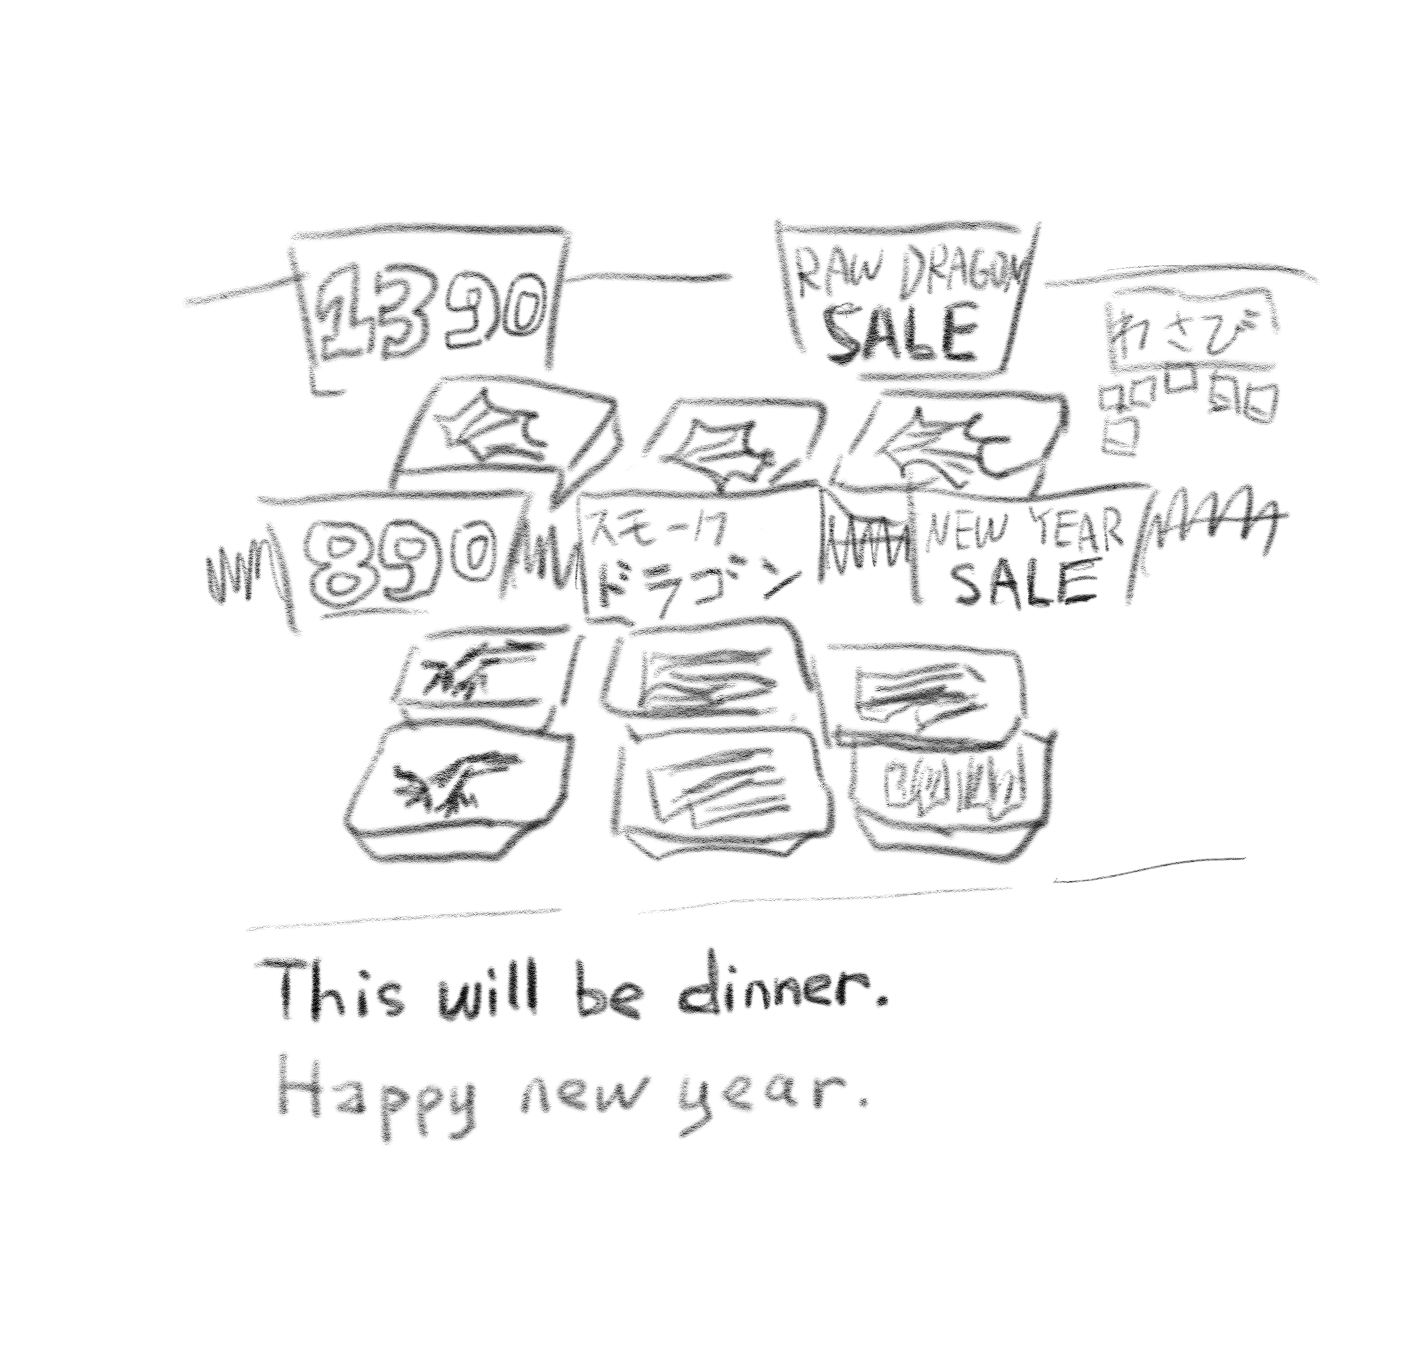 1390
RAW DRAGON
SALE
わさび
890
スモーク
ドラゴン
NEW YEAR
SALE
This will be dinner.
Happy new year.